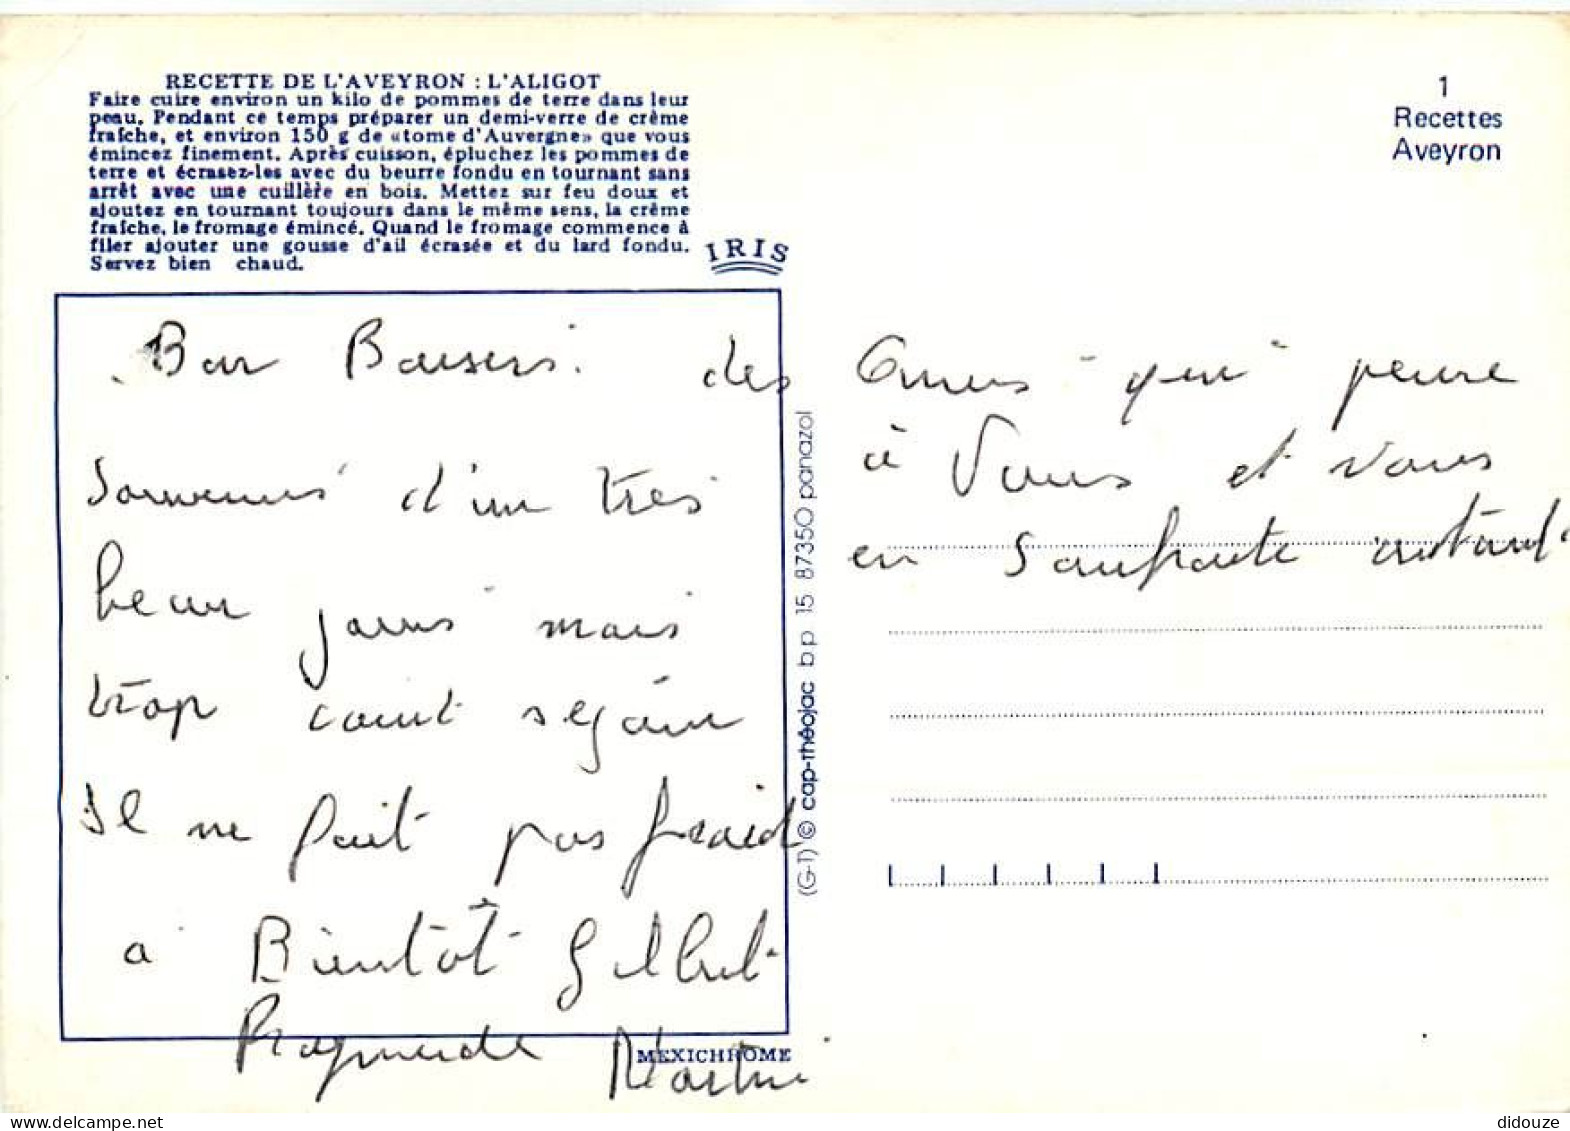 RECETTE DE L'AVEYRON : L'ALIGOT
Faire cuire environ un kilo de pommes de terre dans leur
peau. Pendant ce temps préparer un demi-verre de crème
fraîche, et environ 150 g de «tome d'Auvergne» que vous
émincez finement. Après cuisson, épluchez les pommes de
terre et écrasez-les avec du beurre fondu en tournant sans
arrêt avec une cuillère en bois. Mettez sur feu doux et
ajoutez en tournant toujours dans le même sens, la crème
fraîche, le fromage émincé. Quand le fromage commence à
filer ajouter une gousse d'ail écrasée et du lard fondu.
Servez bien chaud.
IRIS
1
Recettes
Aveyron
Bon Baisers. des
Souvenirs d'un très
beau jours mais
trop court séjour
Il ne fait pas froid
a Bientôt Gilbert
Raymonde Martin
(G-1) © cap-théojac bp 15 87350 panazol
MEXICHROME
Amis qui pense
à Vous et vous
en Souhaite autant
didouze